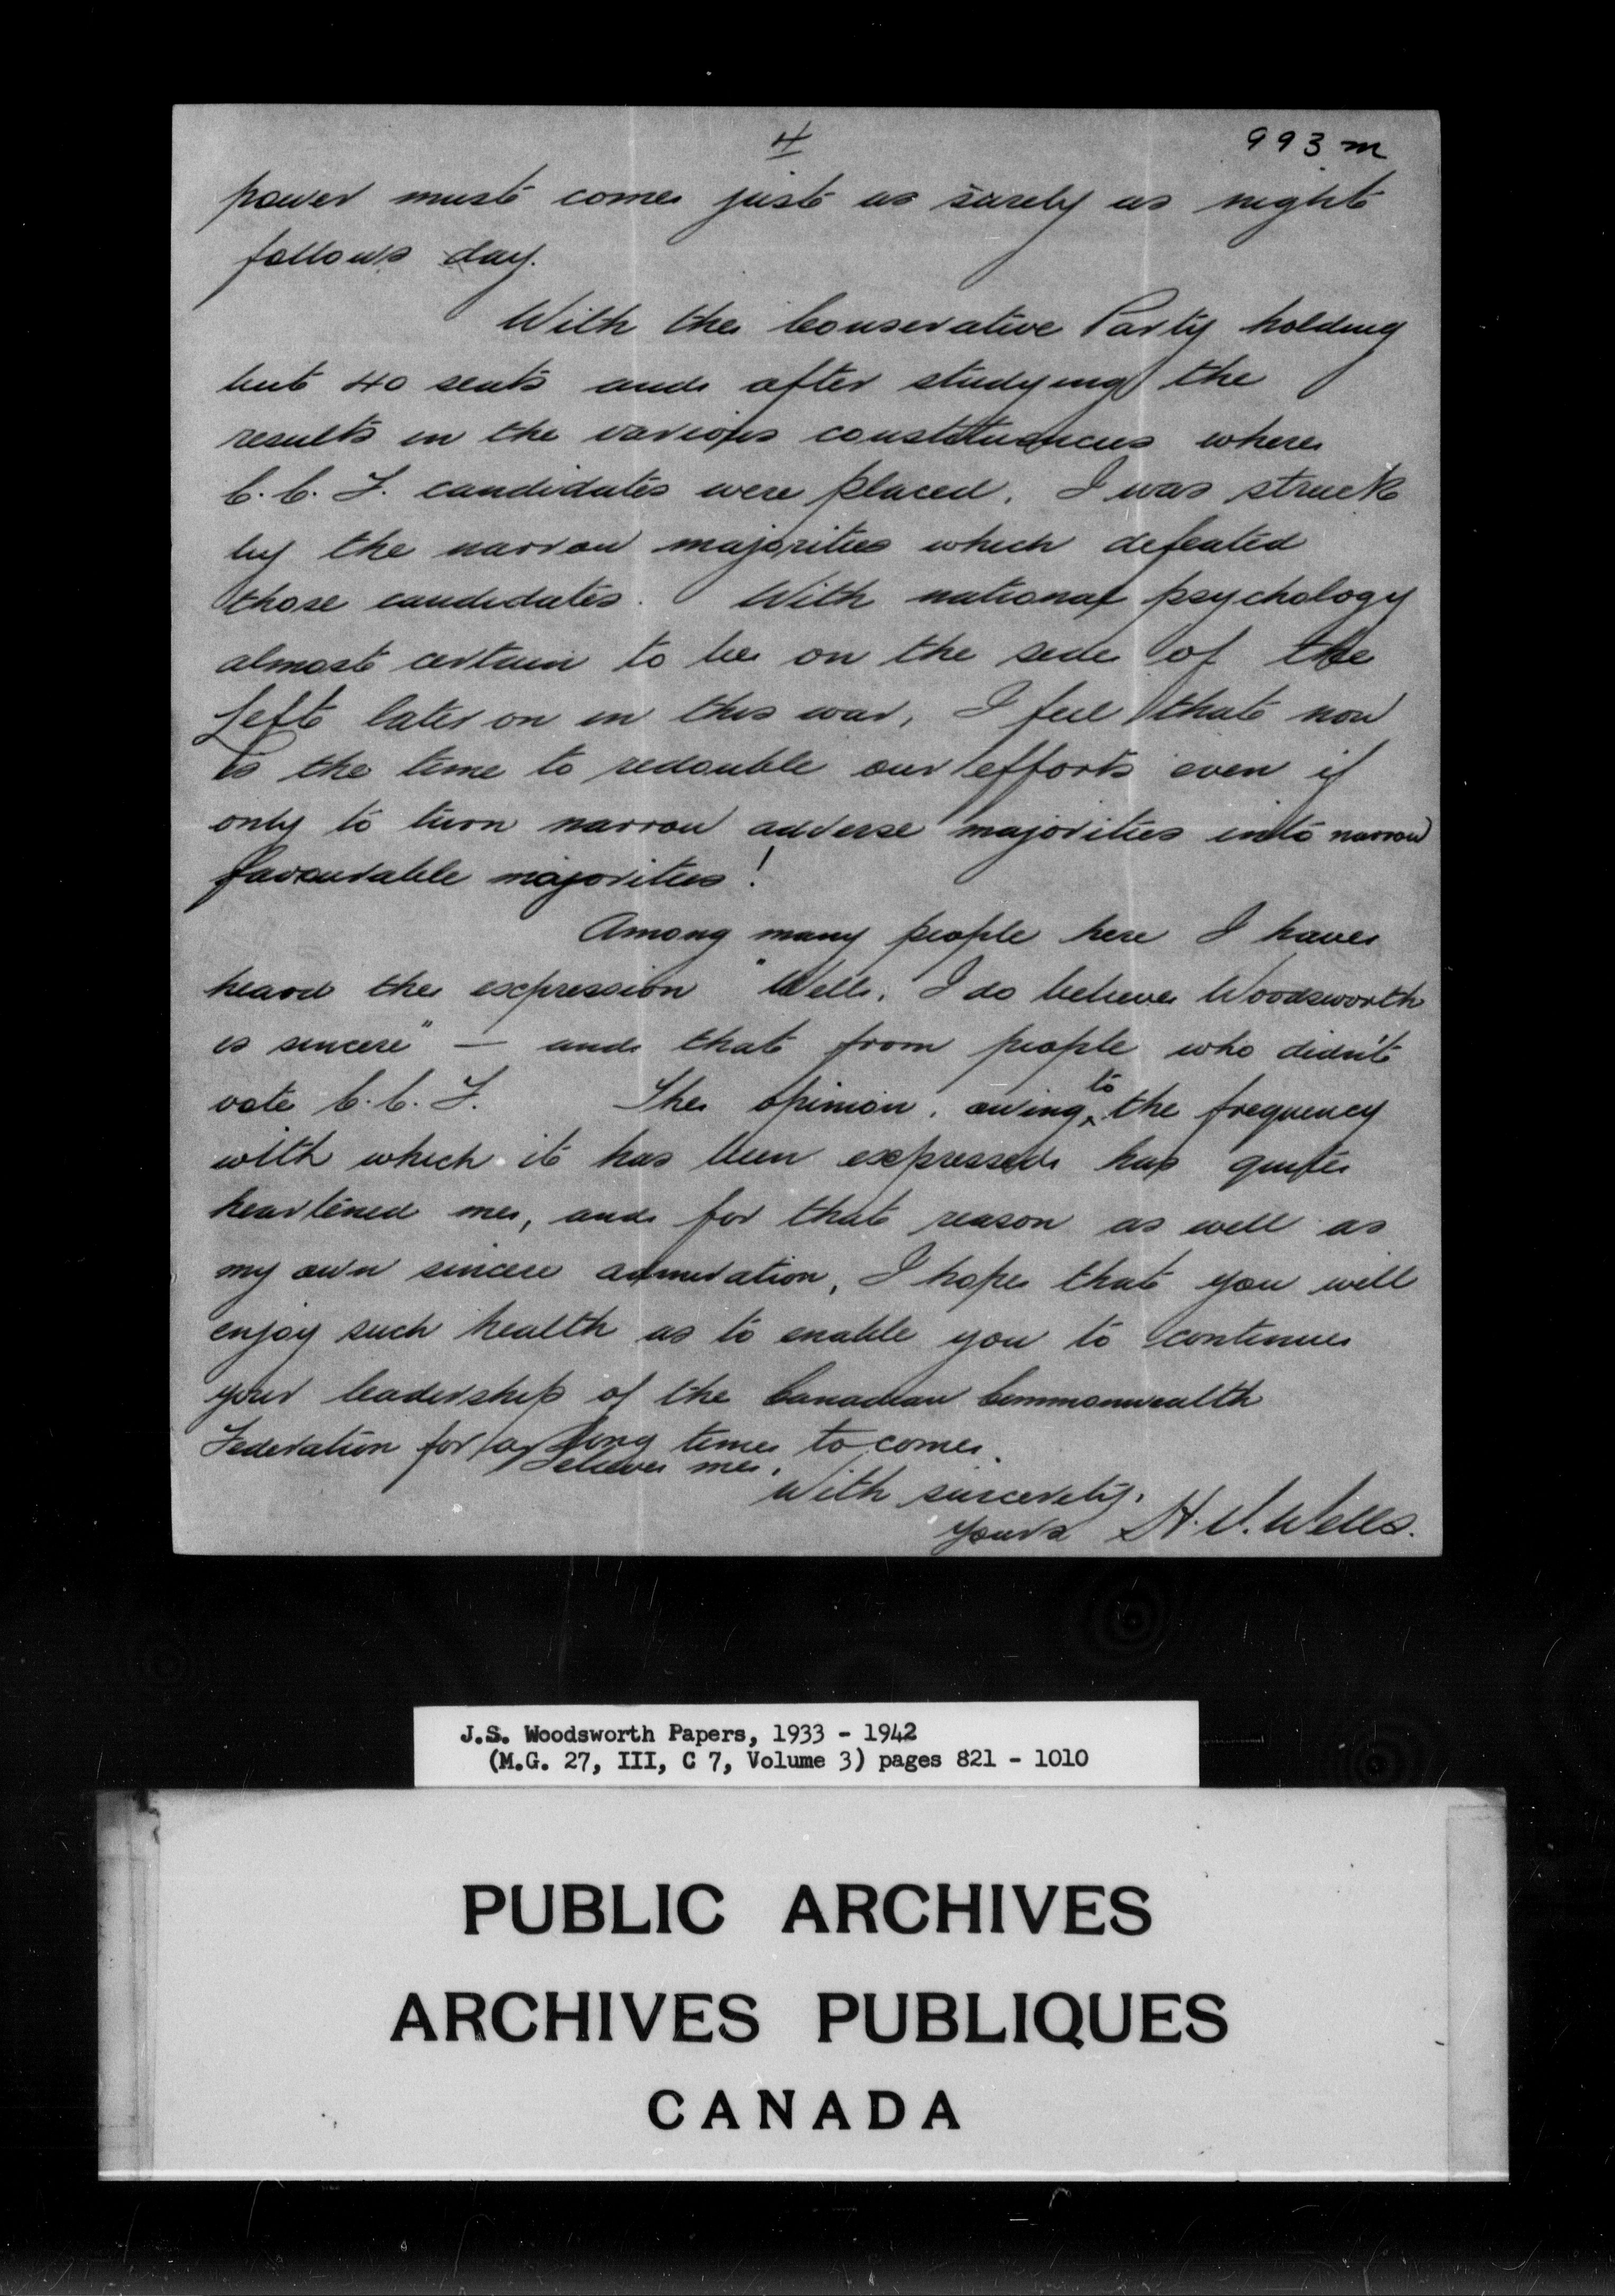 4
993 m
power must come just as surely as night
follows day.
With the Conservative Party holding
but 40 seats and after studying the
results in the various constituencies where
C. C. F. candidates were placed, I was struck
by the narrow majorities which defeated
those candidates. With national psychology
almost certain to be on the side of the
Left later on in this war, I feel that now
is the time to redouble our efforts even if
only to turn narrow adverse majorities into narrow
favourable majorities!
Among many people here I have
heard the expression "Well, I do believe Woodsworth
is sincere" — and that from people who didn't
vote C. C. F. The opinion, owing to the frequency
with which it has been expressed has quite
heartened me, and for that reason as well as
my own sincere admiration, I hope that you will
enjoy such health as to enable you to continue
your leadership of the Canadian Commonwealth
Federation for a long time to come.
Believe me,
With sincerity,
Yours H. V. Wells.
J.S. Woodsworth Papers, 1933 - 1942
(M.G. 27, III, C 7, Volume 3) pages 821 - 1010
PUBLIC ARCHIVES
ARCHIVES PUBLIQUES
CANADA